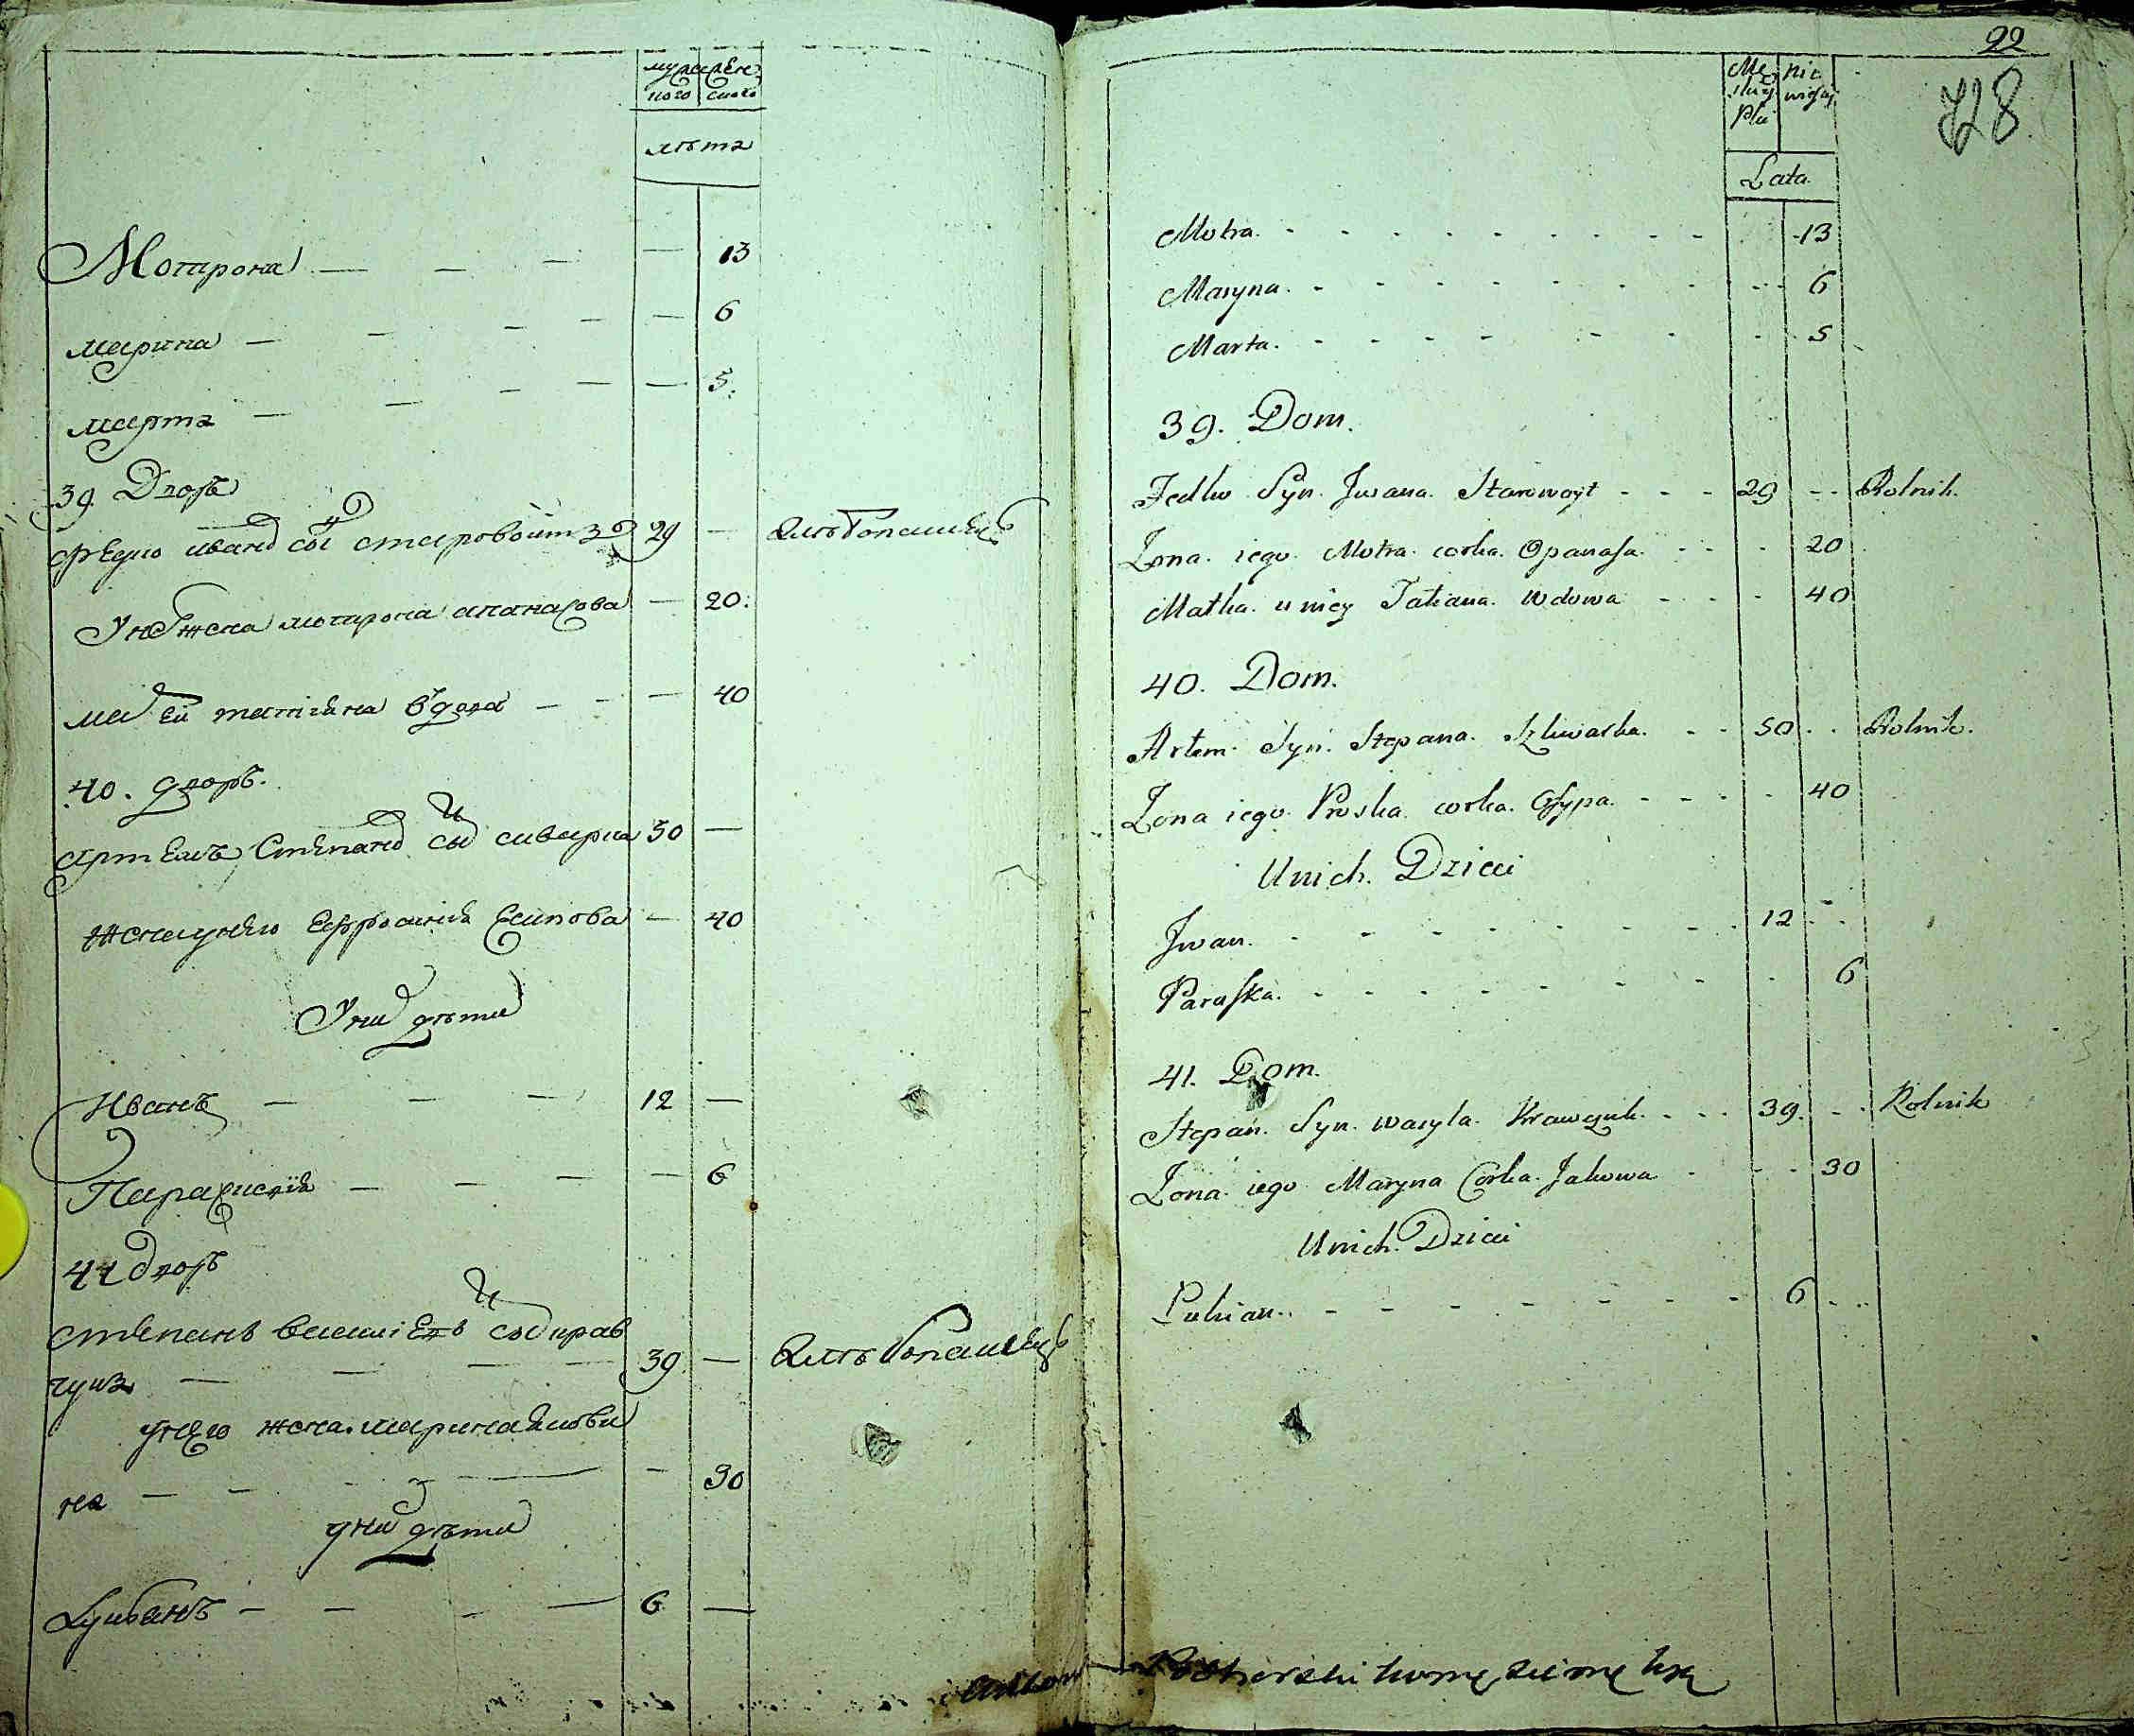 лѣта
Мотрона — — — — 13
марина — — — — — 6
марта — — — — — 5.
39. Дворъ
Федко Иванов сын старовойт 29 —
У нег жена мотрона апанасова — 20.
мат ей татіяна вдова — — — 40
40. дворъ.
артемъ Степанов сын скварка 50 —
жена у него Ефросиния Есипова — 40
У них дѣти
Иванъ — — — 12 —
Параскевія — — — — 6
41 дворъ
степанъ василіевъ сын крав
чукъ — — — — 39 —
у него жена марина якови
на — — — — — 30
у них дѣти
Лукьянъ — — — — 6 —
22
728
Lata
Motra. - - - - - - - - 13
Maryna. - - - - - - - - 6
Marta. - - - - - - - - 5
39. Dom.
Fedko Syn. Jwana. Starowoyt - - - 29 - - Rolnik.
Zona. iego. Motra. corka. Opanasa. - - - 20
Matka. u niey Tatiana. Wdowa - - - - 40
40. Dom.
Artem. Syn. Stepana. Skwarka. - - 50 - - Rolnik.
Zona iego. Proska. corka. Osypa. - - - - 40
Unich. Dzieci
Jwan. - - - - - - - 12 - -
Paraska. - - - - - - - - 6
41. Dom.
Stepan. Syn. Wasyla. Krawczuk. - - - 39. - - Rolnik
Zona. iego. Maryna Corka. Jakowa - - - 30
Unich. Dzieci
Lukian. - - - - - - - 6 - -